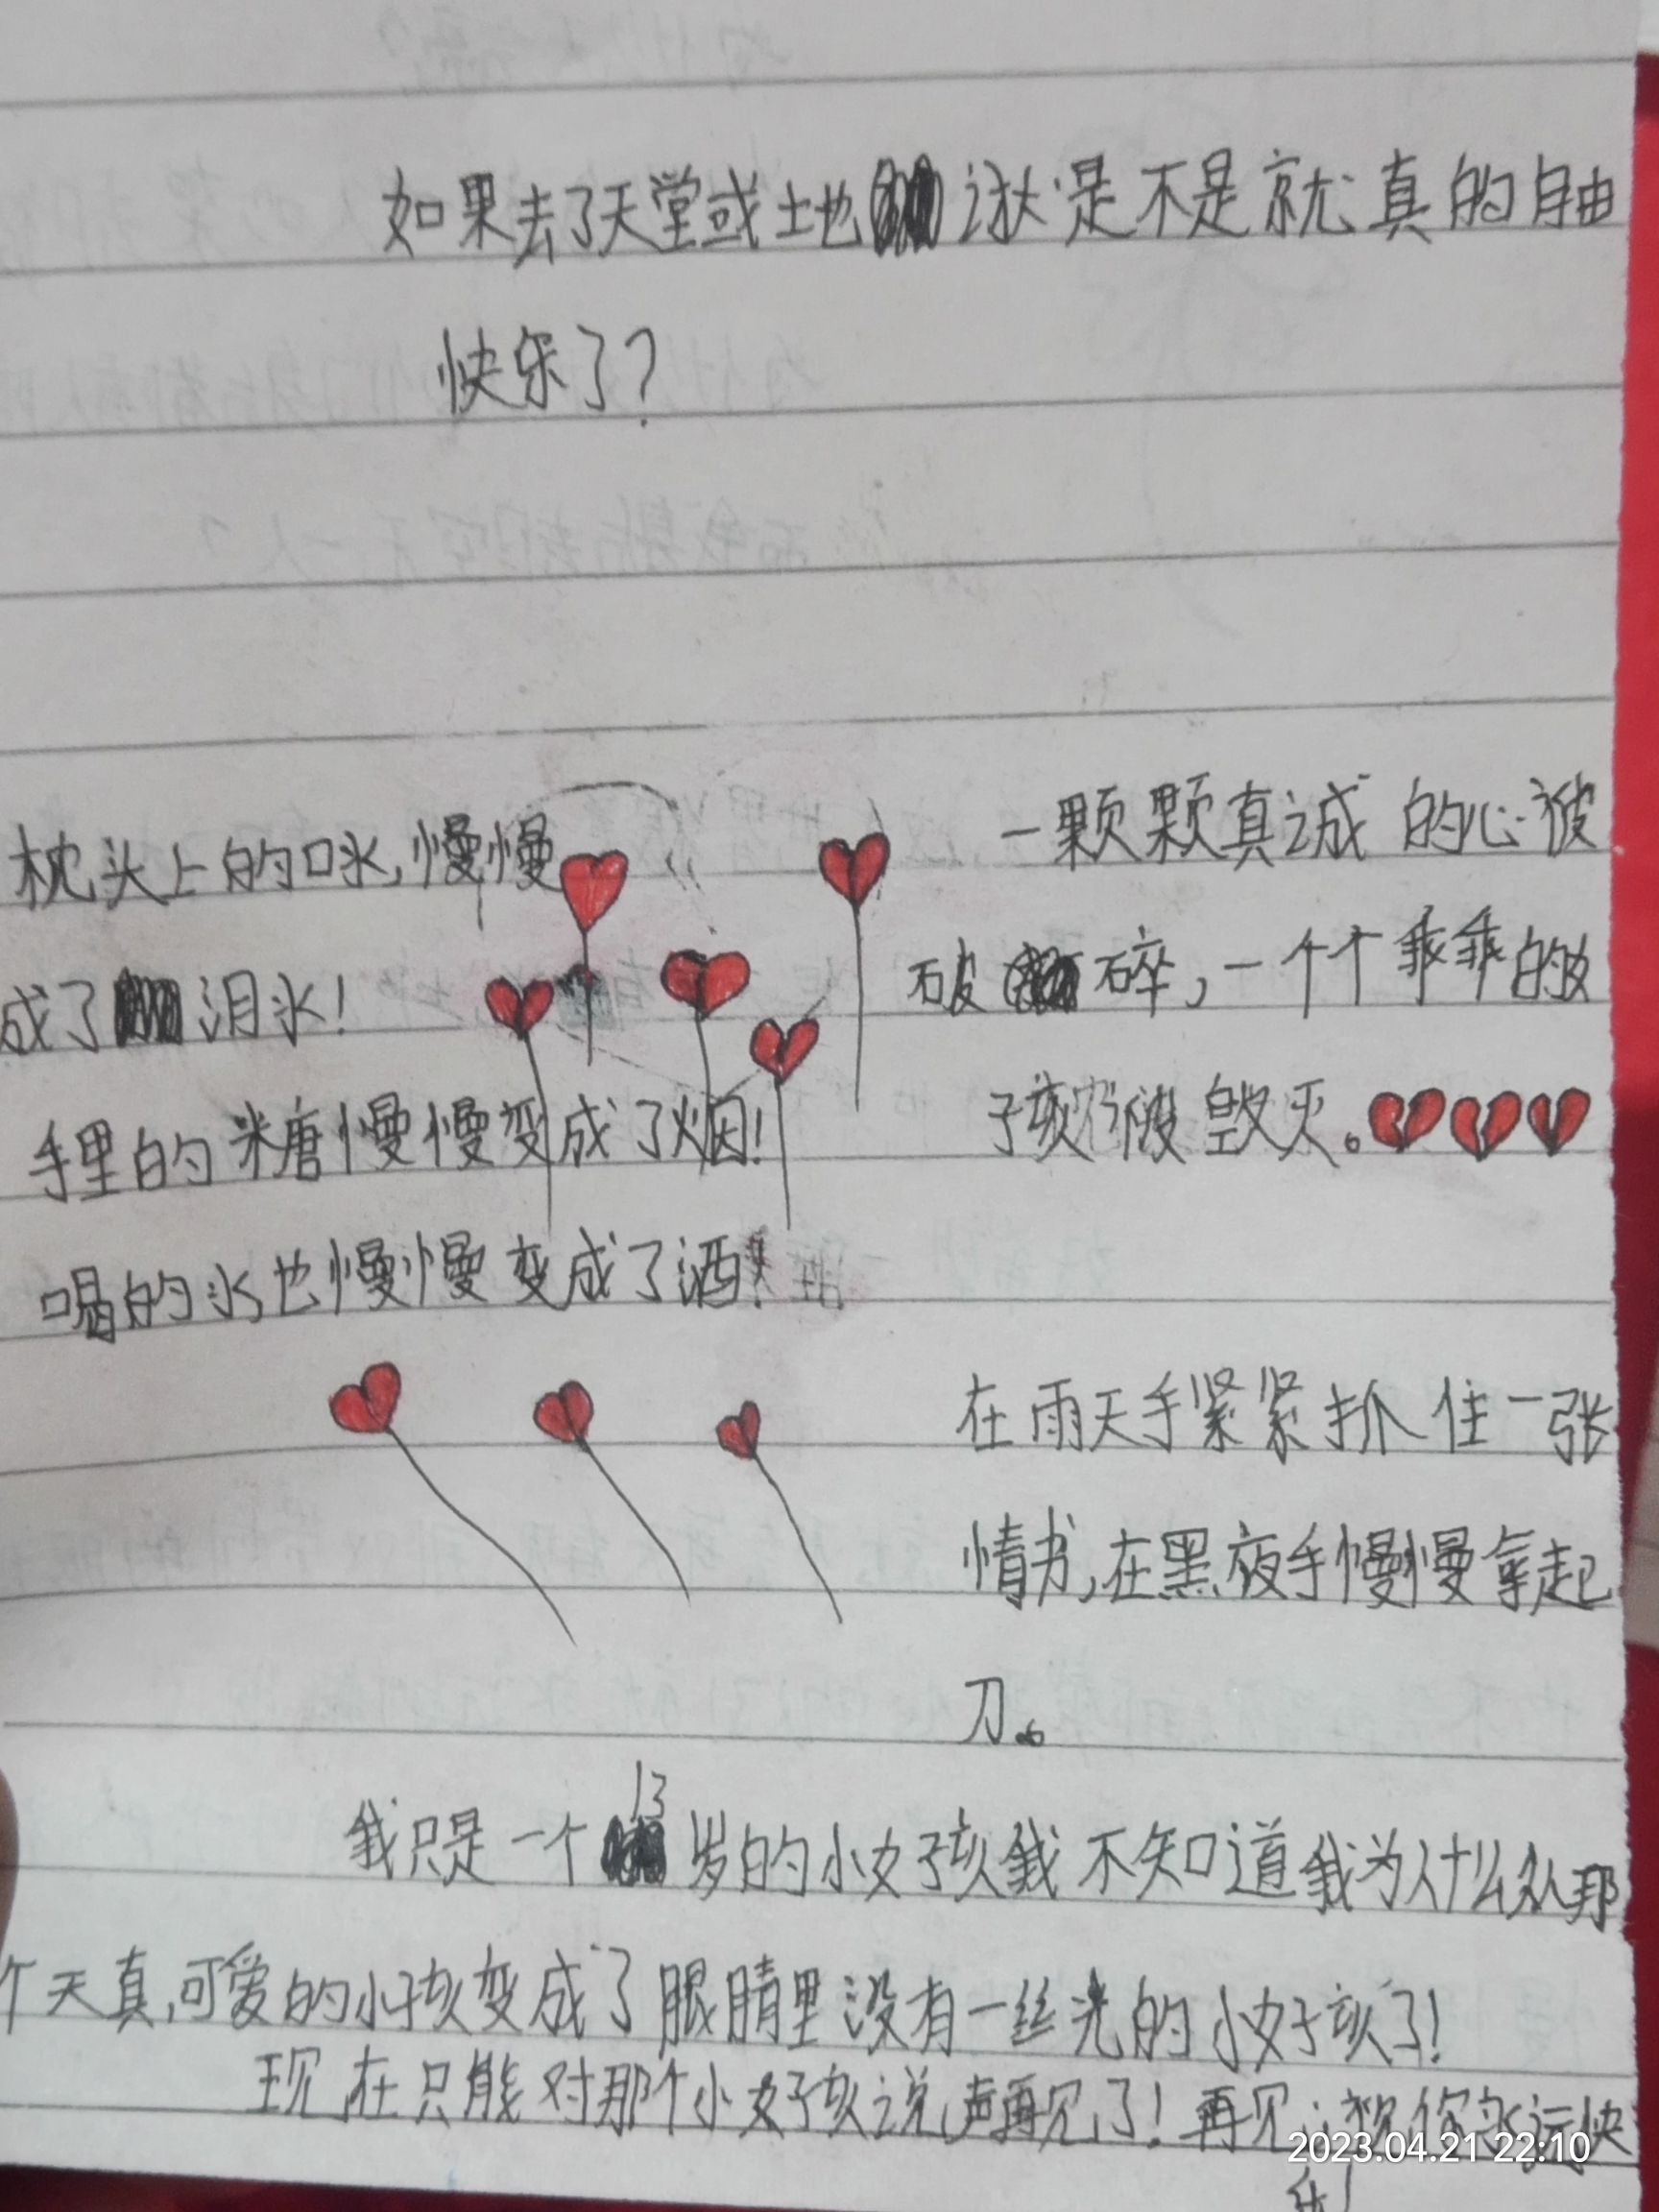 如果去了天堂或土地 狱是不是就真的自由
快乐了?
枕头上的口水,慢慢
成了 泪水!
手里的糖慢慢变成了烟!
喝的水也慢慢变成了酒!
一颗颗真诚的心被
破 碎,一个个乖乖的女
子孩 被毁灭。
在雨天手紧紧抓住一张
情书,在黑夜手慢慢拿起
刀。
我只是一个13岁的小女孩我不知道我为什么从那
个天真,可爱的小孩变成了眼睛里没有一丝光的小女孩了!
现在只能对那个小女孩说声再见了!再见;祝你永远快
乐!
2023.04.21 22:10